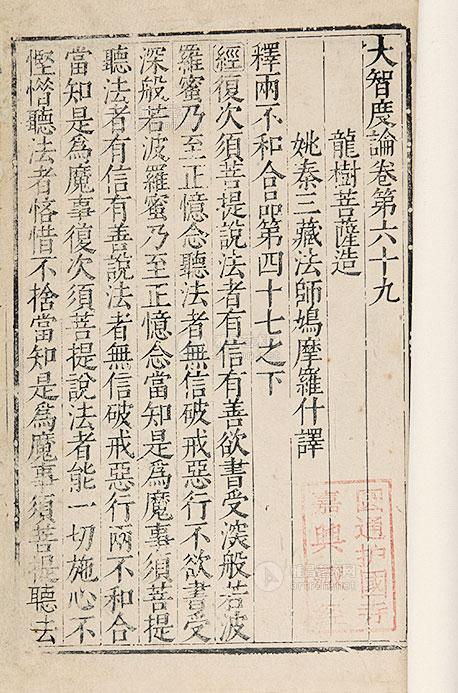 大智度論卷第六十九
龍樹菩薩造
姚秦三藏法師鳩摩羅什譯
釋兩不和合品第四十七之下
經復次須菩提說法者有信有善欲書受深般若波
羅蜜乃至正憶念聽法者無信破戒惡行不欲書受
深般若波羅蜜乃至正憶念當知是為魔事須菩提
聽法者有信有善說法者無信破戒惡行兩不和合
當知是為魔事復次須菩提說法者能一切施心不
慳惜聽法者悋惜不捨當知是為魔事須菩提聽法
通护國寺
嘉興